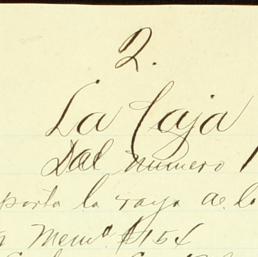 2.
La Caja
Del numero 1
porta la raya de l
Memº $154